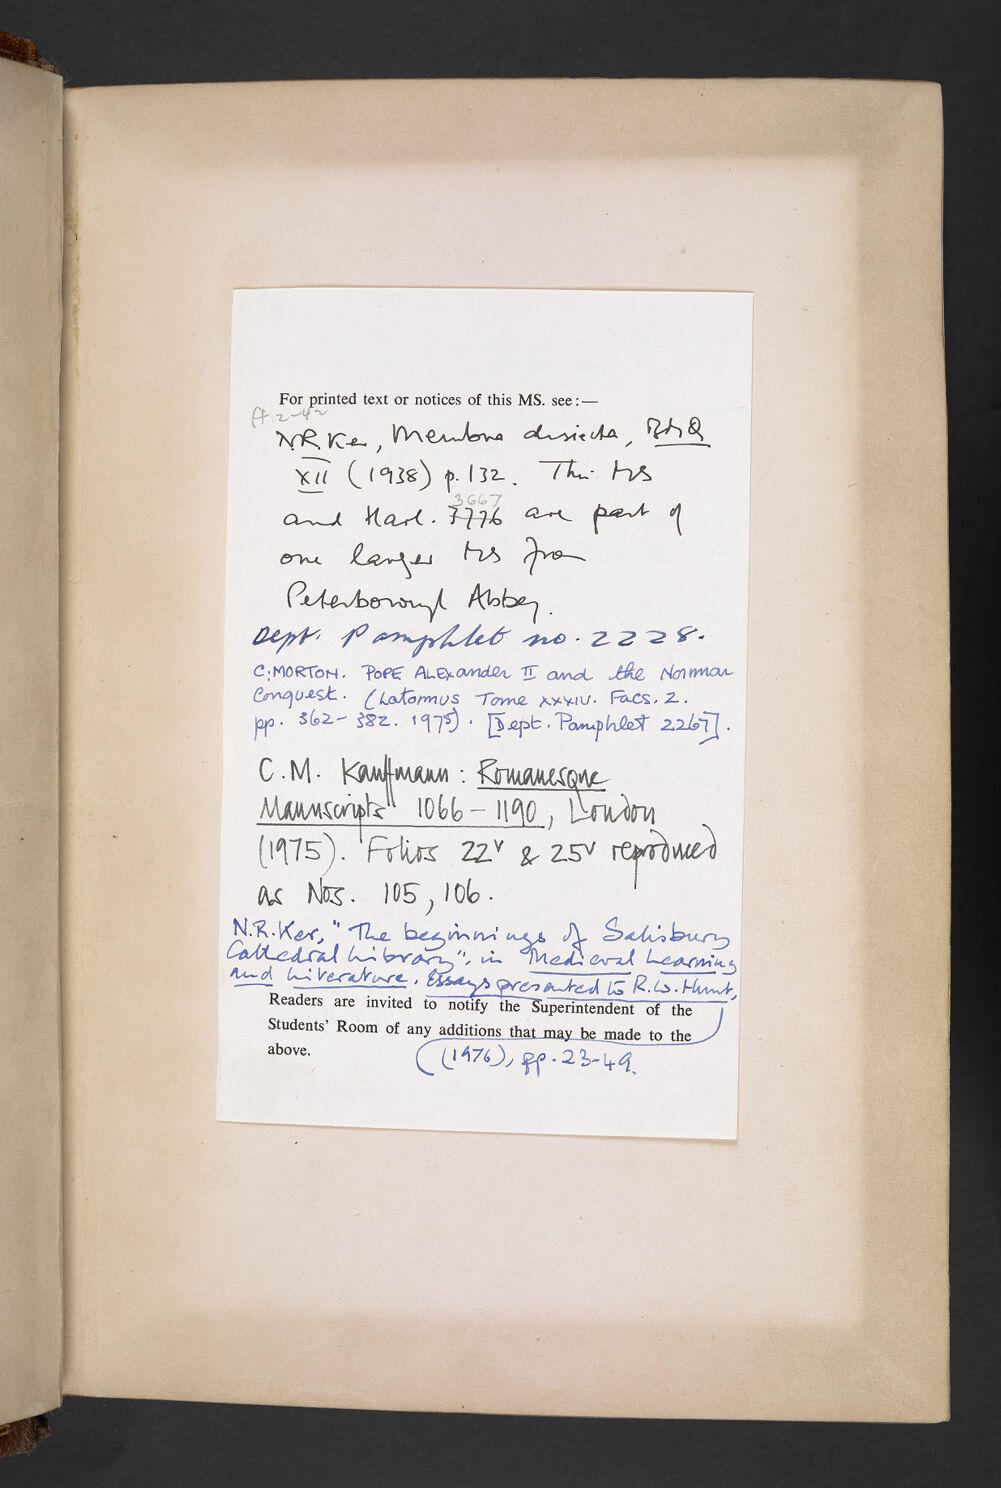 For printed text or notices of this MS. see:—
ff. 2-42
N.R. Ker, Membra disiecta, BMQ
XII (1938) p. 132. This MS
3667
and Harl. 7776 are part of
one larger MS from
Peterborough Abbey.
Dept. Pamphlet no. 2228.
C. MORTON. POPE ALExander II and the Norman
Conquest. (Latomus Tome XXXIV. Facs. 2.
pp. 362-382. 1975). [Dept. Pamphlet 2267].
C.M. Kauffmann: Romanesque
Manuscripts 1066-1190, London
(1975). Folios 22v & 25v reproduced
as Nos. 105, 106.
N.R. Ker, "The beginnings of Salisbury
Cathedral Library", in Medieval Learning
and Literature. Essays presented to R.W. Hunt,
Readers are invited to notify the Superintendent of the
Students' Room of any additions that may be made to the
above.
(1976), pp. 23-49.